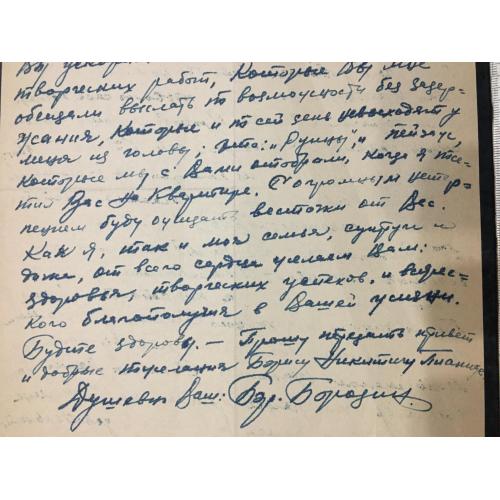 Вы ускор
творческих работ, которые Вы мне
обещали выслать по возможности без задер-
жания, которые и по сей день не выходят у
меня из головы; это: „Руины" и пейзаж,
которые мы с Вами отобрали, когда я посе-
тил Вас на квартире. С огромным нетер-
пением буду ожидать весточки от Вас.
Как я, так и моя семья, супруга и
дочь, от всего сердца желаем Вам:
здоровья, творческих успехов и всяче-
кого благополучия в Вашей жизни.
Будьте здоровы. — Прошу передать привет
и добрые пожелания Борису Никитичу
Душевно Ваш: Бор. Бородин.